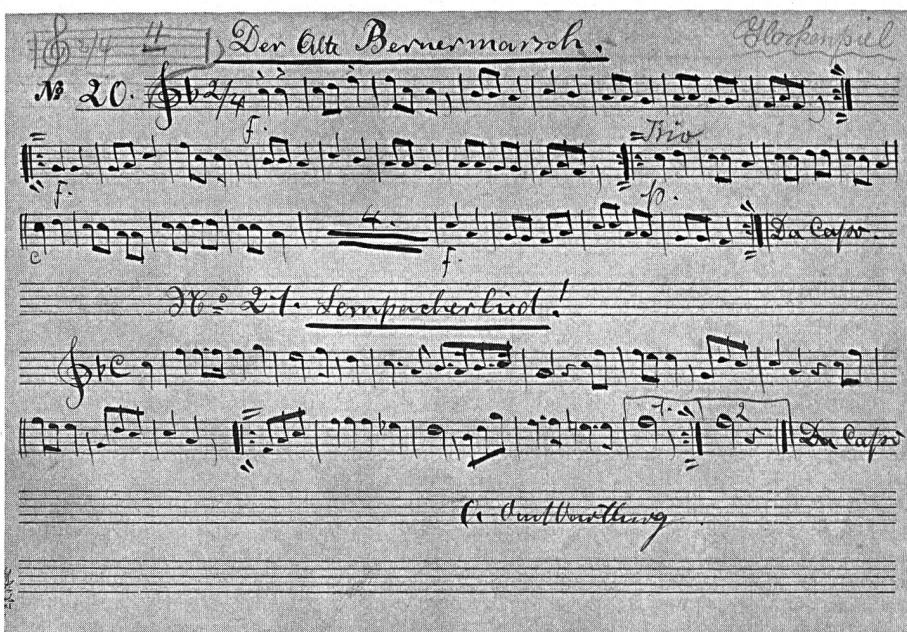 2/4 4 Der Alte Bernermarsch. Glockenspiel
№ 20. 2/4
f.
Trio
f. p.
4. Da Capo.
c f.
No 21. Sempacherlied!
C
1. 2 Da Capo
C.